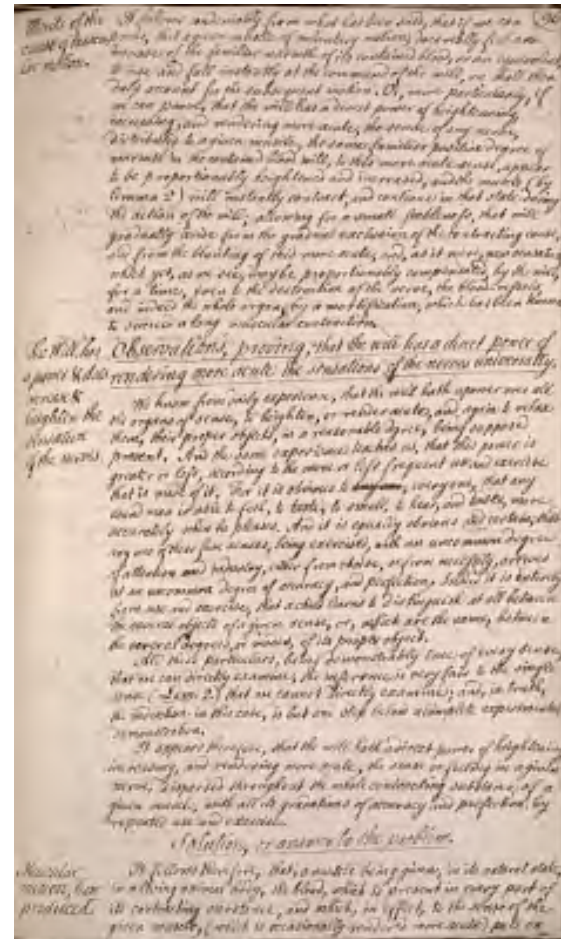 (90
Effects of the
cause of muscu
lar motion.
It follows undeniably from what has been said, that if we can
prove, that a given muscle of voluntary motion, doth really feel an
increase of the familiar warmth of its contained blood, or an
to rise and fall instantly at the command of the will, we shall then
duly account for the subsequent motion. Or, more particularly, if
we can prove, that the will has a direct power of heightening
increasing, and rendering more acute, the sense of any nerve,
distributed to a given muscle, the same familiar positive degree of
warmth in the contained blood will, to this more acute sense, appear
to be proportionably heightened and increased, and the muscle (by
Lemma 2) will instantly contract, and continue in that state during
the action of the will; allowing for a small that will
gradually arise from the gradual exclusion of the contracting cause,
and from the blunting of this more acute, and, as it were, new sensation
which yet, as we see, may be proportionably compensated, by the will,
for a time, even to the destruction of the nerve, the blood vessels,
and indeed the whole organ, by a mortification, which has been known
to succeed a long muscular contraction.
The Will has
a power &
to
heighten the
sensation
of the nerves
Observations, proving, that the will has a direct power of
rendering more acute the sensations of the nerves universally.
We know from only experience, that the will hath a power over all
the organs of sense, to heighten, or render acute, and again to relax
them, their proper objects, in a reasonable degree, being supposed
present. And the same experience teaches us, that this power is
greater or less, according to the more or less frequent use and exercise
that is made of it. For it is obvious to everyone, that any
man is able to feel, to taste, to smell, to hear, and see, more
accurately when he pleases. And it is equally obvious and certain, that
any one of these five senses, being exercised, with an uncommon degree
of attention and industry, either from choice, or from necessity, arrives
at an uncommon degree of accuracy, and perfection. Indeed it is entirely
from use and exercise, that a child learns to distinguish at all between
the several objects of a given sense, or, which are the same, between
the several degrees, or modes, of its proper object.
All these particulars, being demonstrably true of every sense,
that we can directly examine, the inference is very fair to the single
sense (Lem. 2.) that we cannot directly examine; and, in truth,
the induction in this case, is but one step below a complete experimental
demonstration.
It appears therefore, that the will hath a direct power of heightening
increasing, and rendering more acute, the sense or feeling in a given
nerve, dispersed throughout the whole contracting substance, of a
given muscle, with all its gradations of accuracy and perfection, by
repeated use and exercise.
Solution, or answer to the problem.
Muscular
motion, how
produced.
It follows therefore, that, a muscle being given, in its natural state,
in a living animal body, the blood, which is present in every part of
its contracting substance, and which, in effect, to the sense of the
given muscle, (which is occasionally rendered more acute) puts on